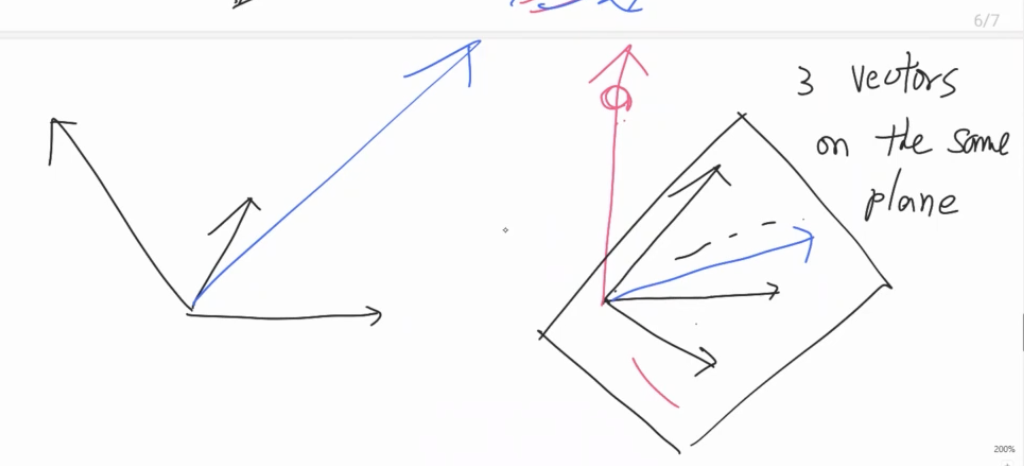 6/7
3 vectors
on the same
plane
200%